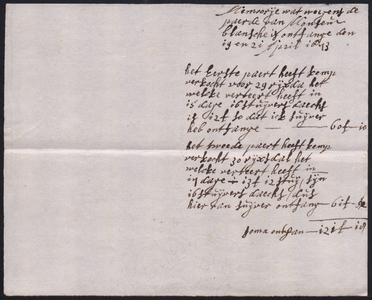 Memorije wat wegens de
paerde van Monseur
blansche is ontfange den
19 en 21 April
het Eerste paert heeft kemp
verkocht voor 29 rijxdal het
welke verteert heeft in
15 dage 16 stuijvers daechs
is 12 f so dat ick suijver
heb ontfange — 60 f - 10
het tweede paert heeft kemp
verkocht 30 rijxdal het
welke verteert heeft in
17 dage - 13 f 12 stuij sijn
16 stuijvers daechs dus
hier van suijver ontfang - 61 f -
soma ontfan — 121 f